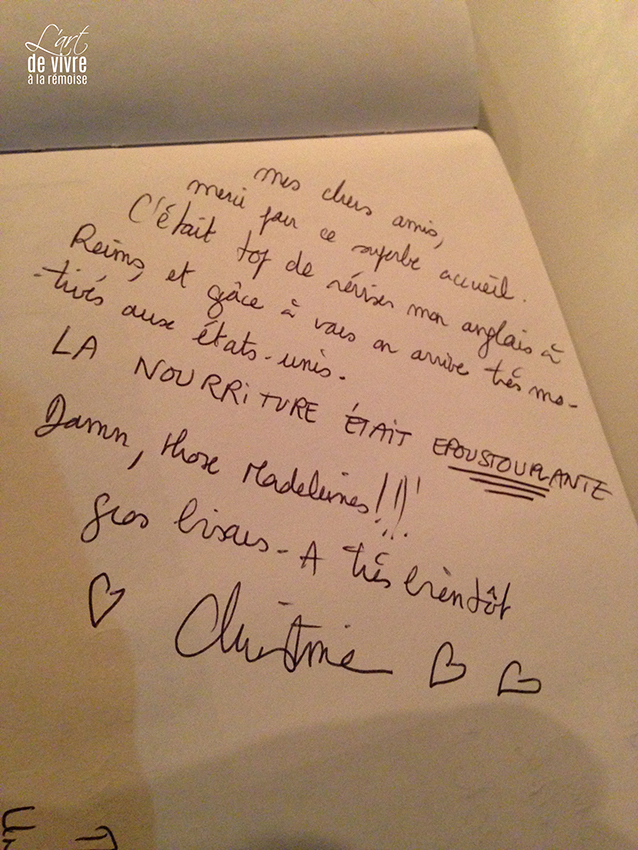 L'art
de vivre
à la rémoise
mes chers amis,
merci pour ce superbe accueil.
C'était top de réviser mon anglais à
Reims, et grâce à vous on arrive très mo-
-tivés aux états-unis.
LA NOURRITURE ÉTAIT EPOUSTOUFLANTE
Damn, those Madeleines!!!
gros bisous - A très bientôt
Christine